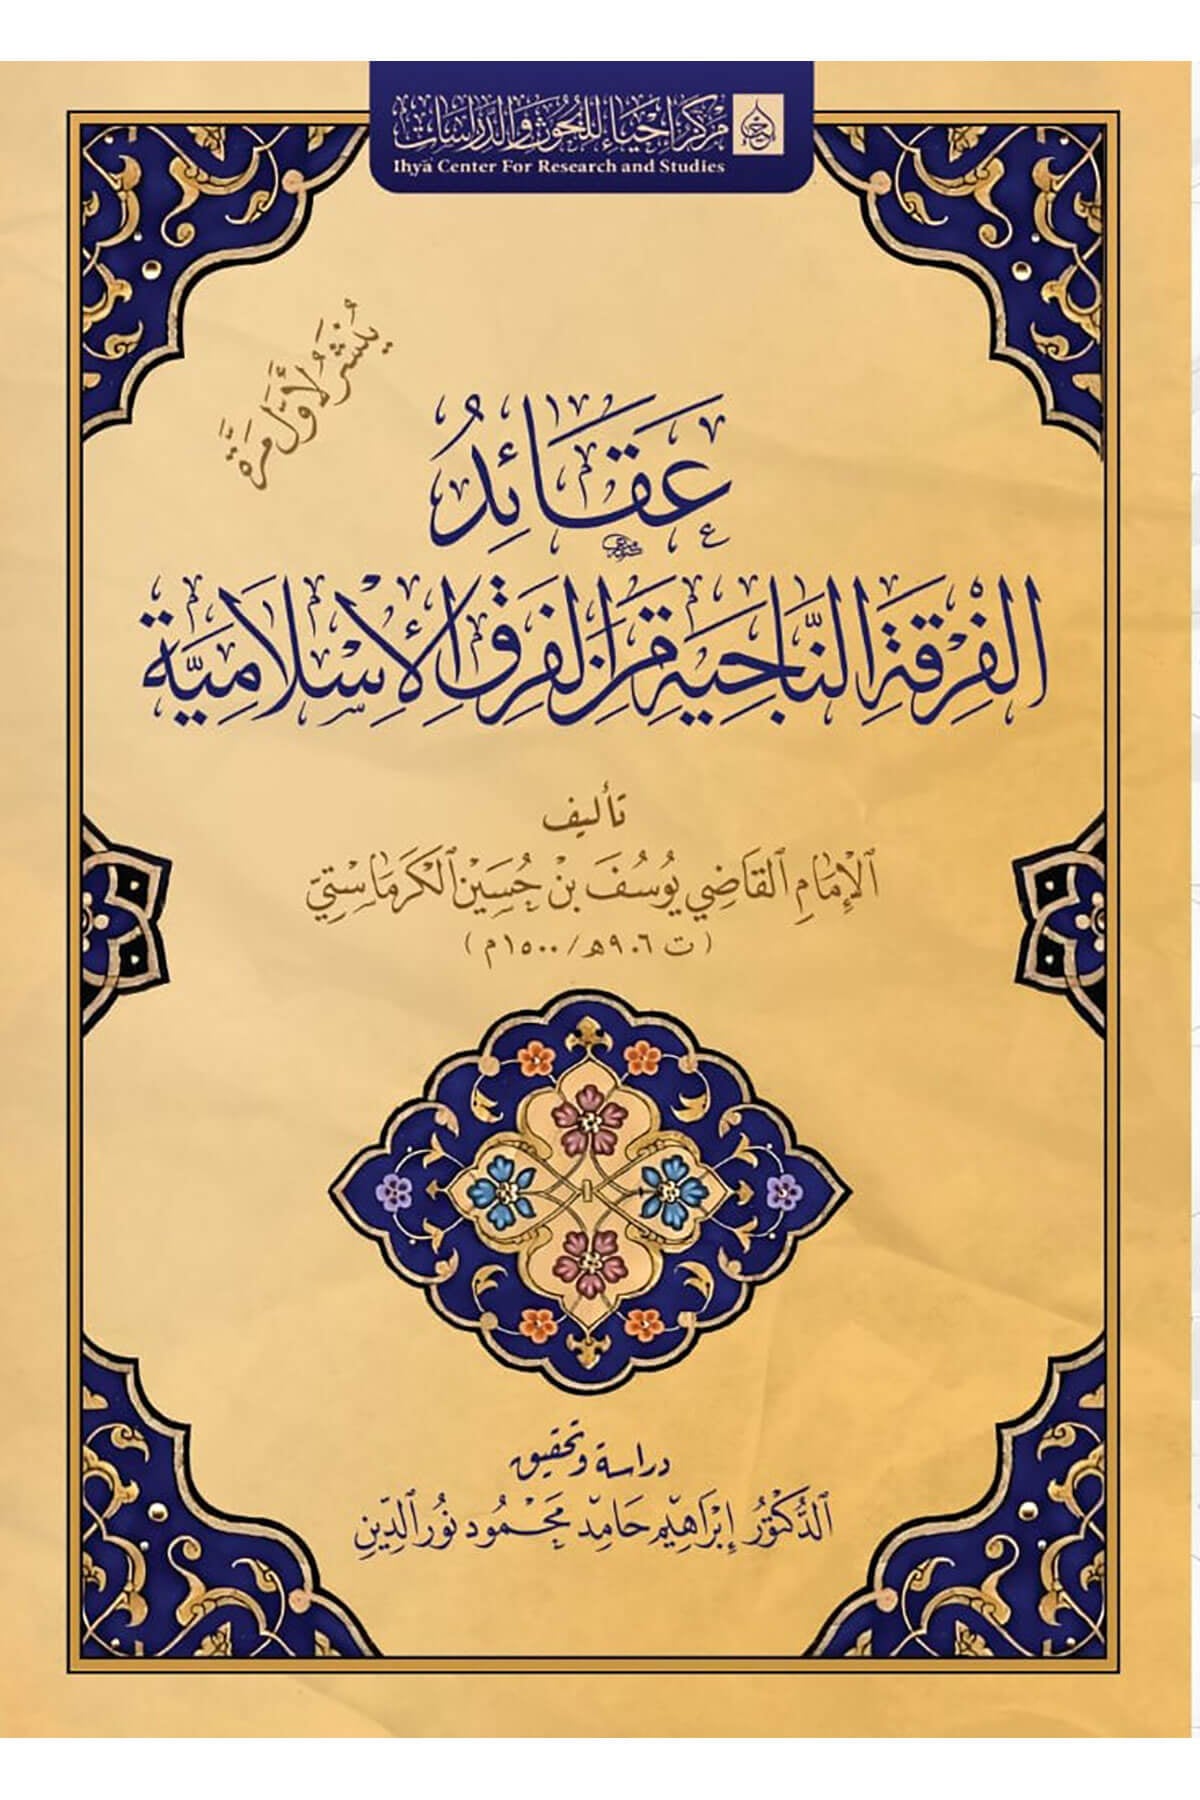 مركز إحياء للبحوث والدراسات
Ihyā Center For Research and Studies
يُنْشَرُ لِأَوَّلِ مَرَّةٍ
عَقَائِدُ
الفِرْقَةِ النَّاجِيَةِ مِنَ الفِرَقِ الإِسْلَامِيَّةِ
تأليف
الإِمَامِ القَاضِي يُوسُفَ بْنِ حُسَيْنِ الكَرْمَاسْتِيِّ
(ت ٩٠٦هـ/١٥٠٠م)
دراسة وتحقيق
الدُّكْتُورُ إِبْرَاهِيم حَامِد مَحْمُود نُور الدِّينِ